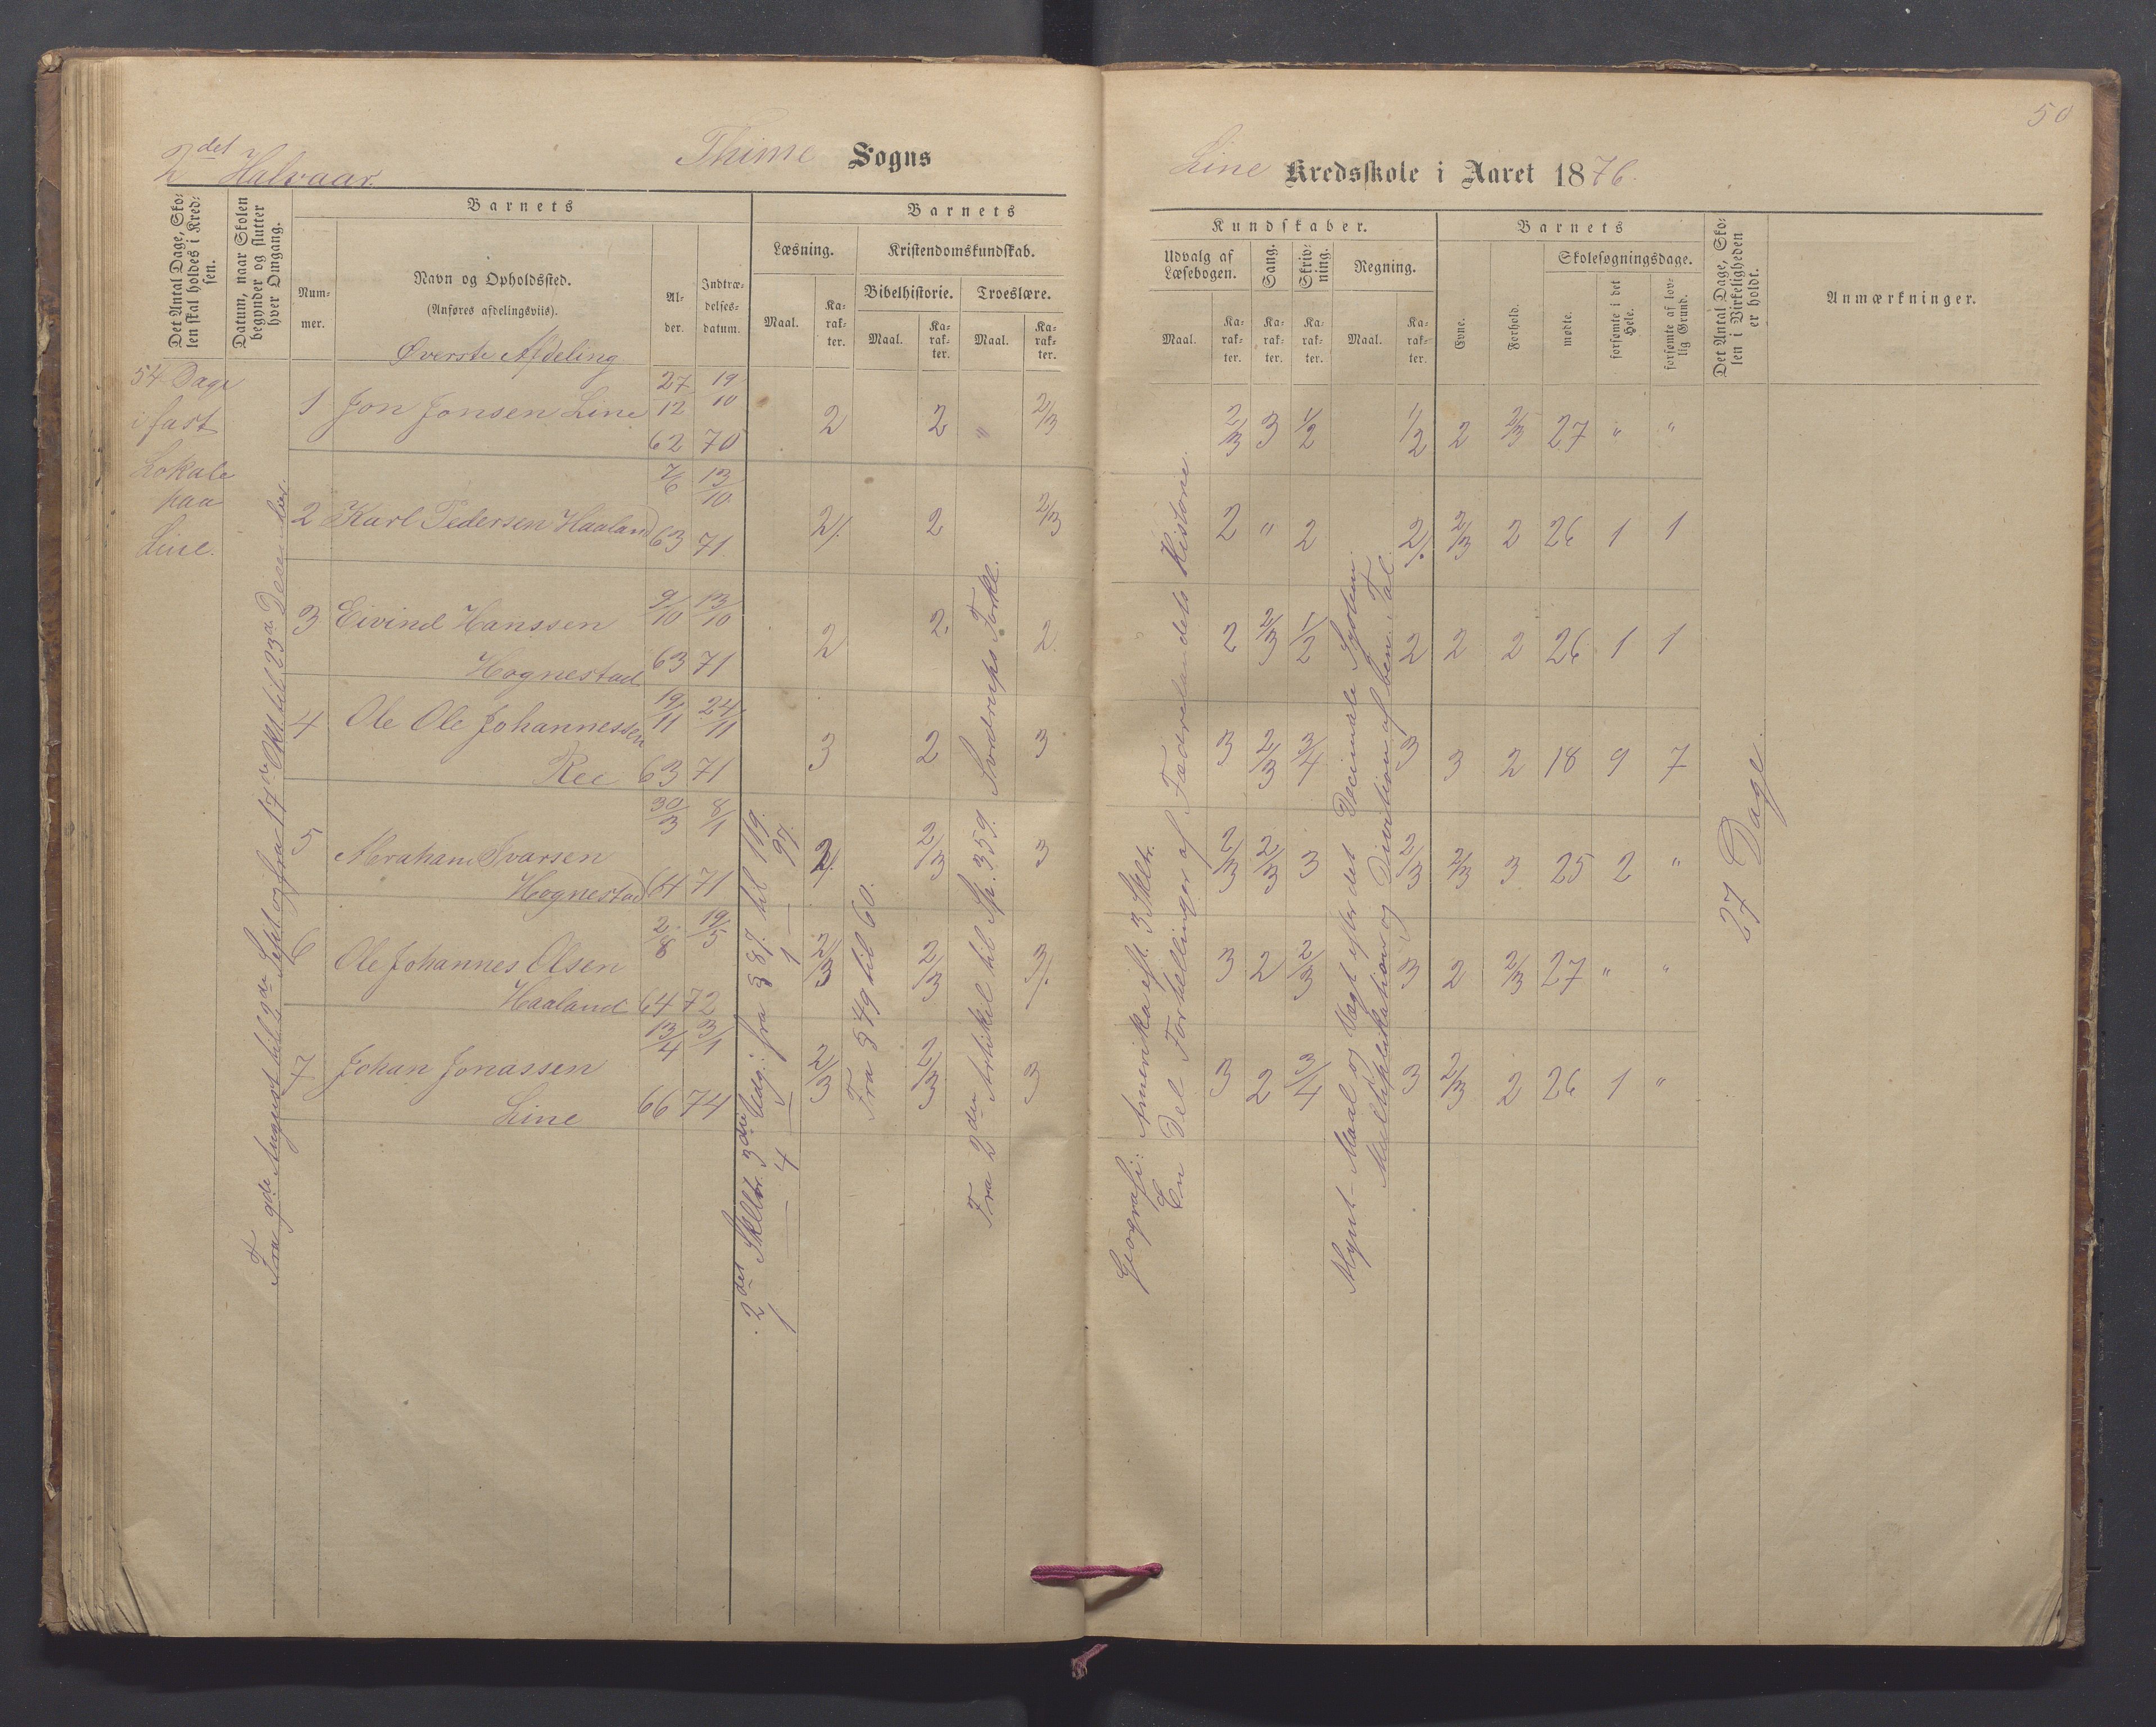 50
2det Halvaar.
Thime Sogns
Line Kredsskole i Aaret 1876.
Det Antal Dage, Skolen skal holdes i Kredsen.
Datum, naar Skolen begynder og slutter hver Omgang.
Barnets
Nummer.
Navn og Opholdssted.
(Anføres afdelingsviis).
Alder.
Indtrædelsesdatum.
Barnets
Læsning.
Maal.
Karakter.
Kristendomskundskab.
Bibelhistorie.
Maal.
Karakter.
Troeslære.
Maal.
Karakter.
Kundskaber.
Udvalg af Læsebogen.
Maal.
Karakter.
Sang.
Karakter.
Skrivning.
Karakter.
Regning.
Maal.
Karakter.
Barnets
Evne.
Forhold.
Skolesøgningsdage.
mødte.
forsømte i det Hele.
forsømte af lovlig Grund.
Det Antal Dage, Skolen i Virkeligheden er holdt.
Anmærkninger.
Øverste Afdeling
54 Dage
i fast
Lokale
paa
Line.
Fra 9de August til 9de Sept og fra 17de Okt til 23de
1 Jon Jonsen Line 27/12 62 19/10 70 2 2 " 2/3 2/3 3 1/2 1/2 2 2/3 27 " "
2 Karl Pedersen Haaland 7/6 63 13/10 71 2/. 2 2/3 2 " 2 2/. 2/3 2 26 1 1
3 Eivind Hanssen
Hognestad 9/10 63 13/10 71 2 2. 2. 2 2/3 1/2 2 2 2 26 1 1
4 Ole Ole Johannessen
Ree 19/11 63 24/11 71 3 2 3 3 2/3 3/4 3 3 2 18 9 7
5 Abraham Ivarsen
Hognestad 30/3 64 8/1 71 2/. 2/3 3 2/3 2/3 3 2/3 2/3 3 25 2 "
6 Ole Johannes Olsen
Haaland 2/8 64 19/5 72 2/3 2/3 3/. 3 2 2/3 3 2 2/3 27 " "
7 Johan Jonassen
Line 13/4 66 3/1 74 2/3 2/3 3 3 2 3/4 3 2/3 2 26 1 "
2det Skoltr. 3die Udg: fra § 87 til 119.
1 — 4 — 1 — 97.
Fra § 49 til 60.
Fra 2den Artikel til Sp. 359. Sverdrups Forkl.
Geografi: Amerika eft. 3 Skltr.
En Del Fortællinger af Fædrelandets Historie.
Mynt- Maal og Vægt efter det Decimale System.
Multiplikation og Division af ben. Tal.
27 Dage.